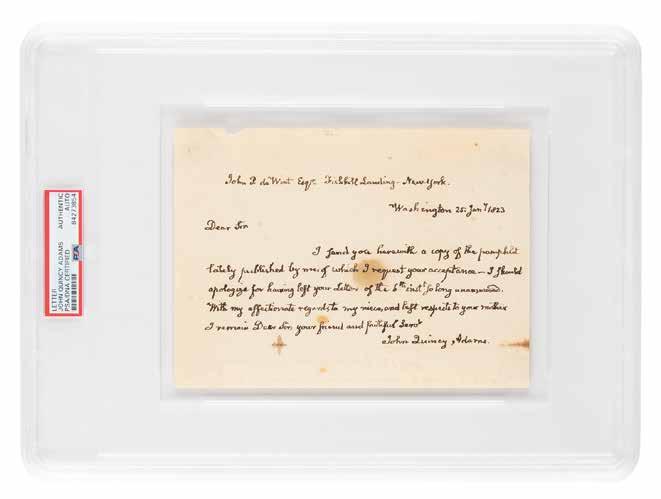 John P. de Wint Esqr. Fishkill Landing - New-York.
Washington 25. Jany. 1823
Dear Sir
I send you herewith a copy of the pamphlet
lately published by me, of which I request your acceptance — I should
apologize for having left your Letter of the 6th inst. so long unanswered.
With my affectionate regards to my niece, and best respects to your mother
I remain Dear Sir, your friend and faithful Servt
John Quincy Adams.
LETTER
JOHN QUINCY ADAMS
PSA/DNA CERTIFIED
AUTHENTIC
AUTO
84273854
PSA